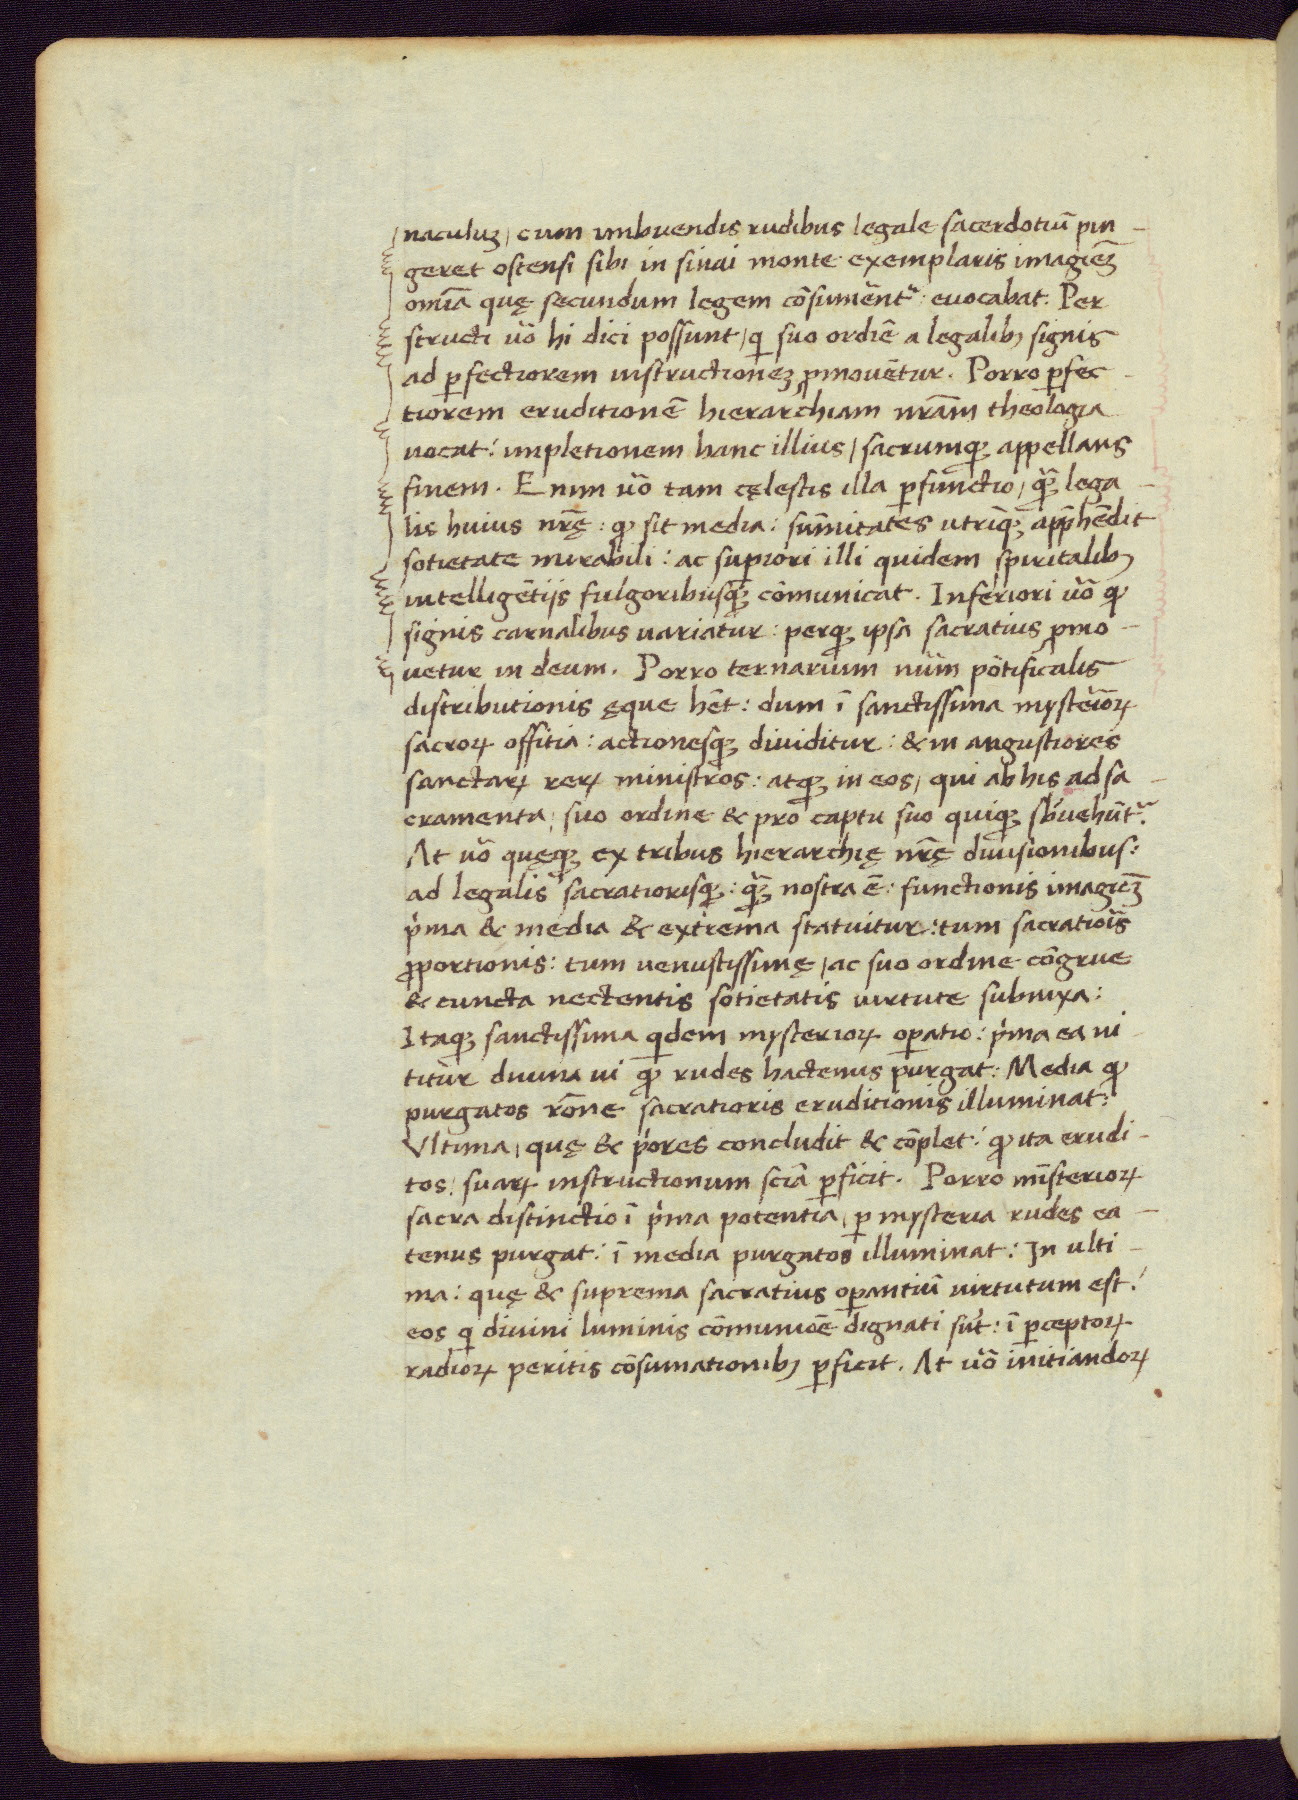 naculuꝫ, cum imbuendis rudibus legale sacerdotiū pin-
geret ostensi sibi in sinai monte exemplaris imagiēꝫ
omīa quę secundum legem cōsumēnt᷑: evocabat. Per
structi ũo hi dici possunt, qi suo ordiē a legalibꝫ signis
ad ꝑfectiorem instructioneꝫ ꝓmovētur. Porro ꝑfec-
tiorem eruditionē hierarchiam nr̄am theologia
vocat: impletionem hanc illius, sacrumqꝫ appellans
finem. Enim ũo tam cęlestis illa ꝑfunctio, qꝫ̄ lega-
lis huius nr̄ę: qꝰ sit media: sūmitates utriqꝫ app̄hēdit
sotietate mirabili: ac suꝑiori illi quidem spiritalibꝫ
intelligētijs fulgoribusqꝫ cōmunicat. Inferiori ũo qꝰ
signis carnalibus variatur: perqꝫ ipsa sacratius ꝓmo-
vetur in deum. Porro ternarium nūm pōtificalis
distributionis ęque hēt: dum ī sanctissima mysterioꝝ
sacroꝝ offitia: actionesqꝫ dividitur: & in angustiores
sanctaꝝ reꝝ ministros: atqꝫ in eos, qui ab his ad sa-
cramenta, suo ordine & pro captu suo quiqꝫ sbvehūt᷑.
At ũo quęqꝫ ex tribus hierarchię nr̄ę divisionibus:
ad legalis sacratiorisqꝫ: qꝫ̄ nostra ē: functionis imagiēꝫ
pͥma & media & extrema statuitur: tum sacratiois̄
ꝓportionis: tum venustissimę, ac suo ordine cōgrue
& cuncta nectentis sotietatis virtute subnixa:
Itaqꝫ sanctissima qͥdem mysterioꝝ oꝑatio: pͥma ea ni
titur divina vi qꝰ rudes hactenus purgat: Media qꝰ
purgatos rōne sacratioris eruditionis illuminat:
Ultima, quę & pͥores concludit & cōplet: qꝰ ita erudi-
tos, suaꝝ instructionum sciā ꝑficit. Porro mīsterioꝝ
sacra distinctio ī pͥma potentia, ꝑ mysteria rudes ea-
tenus purgat: ī media purgatos illuminat: In ulti-
ma: quę & suprema sacratius oꝑantiū virtutum est:
eos qi divini luminis cōmunioē dignati sūt: ī ꝑceptoꝝ
radioꝝ peritis cōsumationibꝫ ꝑficit. At ũo initiandoꝝ